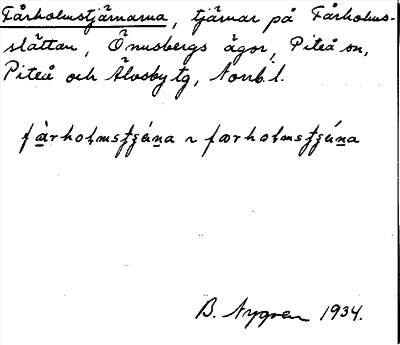 Fårholmstjärnarna, tjärnar på Fårholms-
slättan, Önusbergs ägor, Piteå sn,
Piteå och Älvsby tg, Norrb. l.
fàrholmstjẹ́ṇa ~ farholmstjẹ́ṇa
B. Nygren 1934.